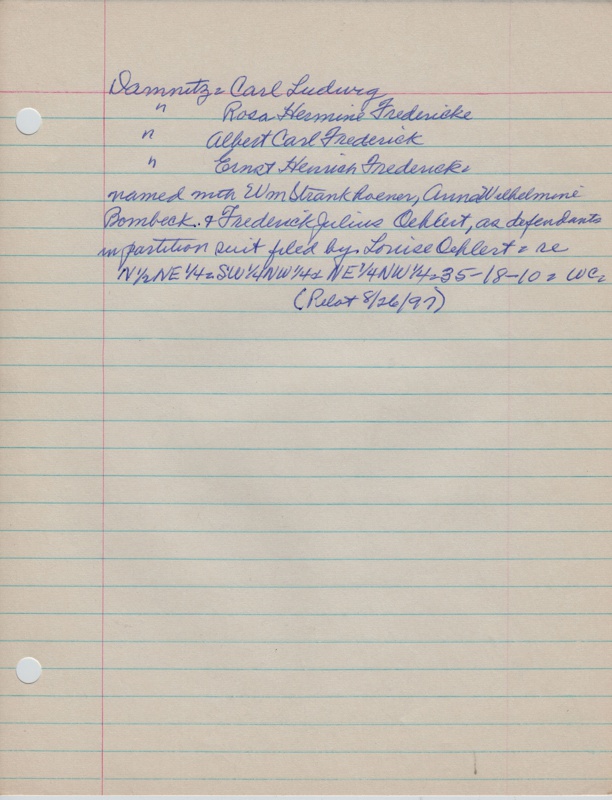 Damnitz = Carl Ludwig
" Rosa Hermine Fredericke
" Albert Carl Frederick
" Ernst Henrich Frederick.
named with Wm Strankhoener, Anna Wilhelmine
Bombeck. & Frederick Julius Oehlert, as defendants
in partition suit filed by Louise Oehlert = re
N½NE¼ = SW¼NW¼ & NE¼NW¼ = 35-18-10 = WC =
(Pilot 8/26/97)